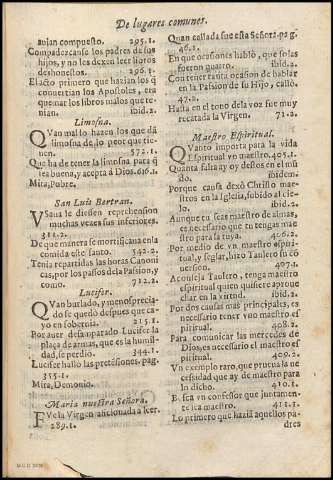 De lugares comunes.
auian compuesto. 295.1.
Compadezcanse los padres de sus
hijos, y no les dexen leer libros
deshonestos. 295.1.
El acto primero que hazian los q̃
conuertian los Apostoles, era
quemar los libros malos que te-
nian. ibid.2.
Limosna.
QVan mal lo hazen los que dã
limosna de lo peor que tie-
nen. 572.1.
Que ha de tener la limosna para q̃
sea buena, y acepta à Dios. 616.1.
Mira, Pobre.
San Luis Bertran.
VSaua le diessen reprehension
muchas vezes sus inferiores.
311.2.
De que manera se mortificaua en la
comida este santo. 542.2.
Tenia repartidas las horas Canoni
cas, por los passos de la Passion, y
como. 712.2.
Lucifer.
QVan burlado, y menosprecia-
do se quedo despues que ca-
yo en soberuia. 215.1.
Por auer desamparado Lucifer la
plaça de armas, que es la humil-
dad, se perdio. 344.1.
Lucifer hallò las pretẽsiones. pag.
355.1.
Mira, Demonio.
Maria nuestra Señora.
FVe la Virgen aficionada a leer.
289.1.
Quan callada fue esta Señora. pag.
46.2.
En que ocasiones hablò, que solas
fueron quatro. ibid.2.
Con tener tanta ocasion de hablar
en la Passion de su Hijo, callò.
47.2.
Hasta en el tono de la voz fue muy
recatada la Virgen. 71.2.
Maestro Espiritual.
QVanto importa para la vida
Espiritual vn maestro. 405.1.
Quanta falta ay de estos en el mũ
do. ibidem.
Porque causa dexò Christo maes-
tros en la Iglesia, subido al cie-
lo. ibid.2.
Aunque tu seas maestro de almas,
es necessario que tu tengas maes-
tro para la tuya. 406.2.
Por medio de vn maestro espiri-
tual, y seglar, hizo Taulero su cõ
uersion. 407.1.
Aconseja Taulero, tenga maestro
espiritual quien quisiere aproue
char en la virtud. ibid.2.
Por dos causas mas principales, es
necessario tener vno maestro es
piritual. 408.2.
Para comunicar las mercedes de
Dios, es necessario el maestro es
piritual. 409.2.
Vn exemplo raro, que prueua la ne
cessidad que ay de maestro para
lo dicho. 410.1.
Busca vn confessor que juntamen-
te sea maestro. 411.1.
Lo primero que hazia aquellos pa
dres